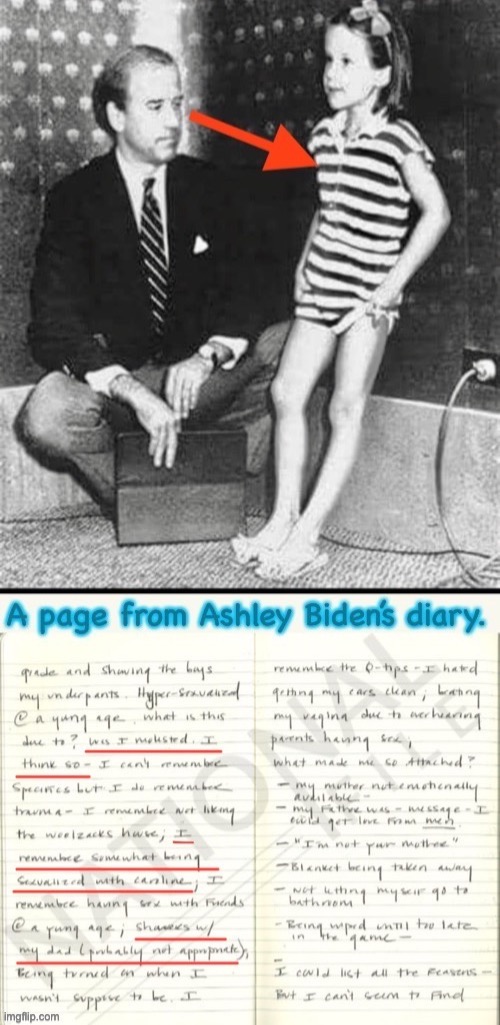 A page from Ashley Biden's diary.
grade and showing the boys
my underpants. Hyper-sexualized
@ a yung age. What is this
due to? Was I molested. I
think so - I can't remember
specifics but I do remember
trauma - I remember not liking
the woolzacks house; I
remember somewhat being
sexualized with caroline; I
remember having sex with friends
@ a yung age; showers w/
my dad (probably not appropriate).
Being turned on when I
wasn't suppose to be. I
remember the Q-tips - I hated
getting my ears clean; beating
my vagina due to overhearing
parents having sex;
what made me so Attached?
- my mother not emotionally
available -
- my Father was - message - I
could get love from men.
- "I'm not your mother"
- Blanket being taken away
- not letting myself go to
bathroom
- Being wiped until too late
in the game -
-
I could list all the reasons -
But I can't seem to find
NATIONAL FILE
imgflip.com